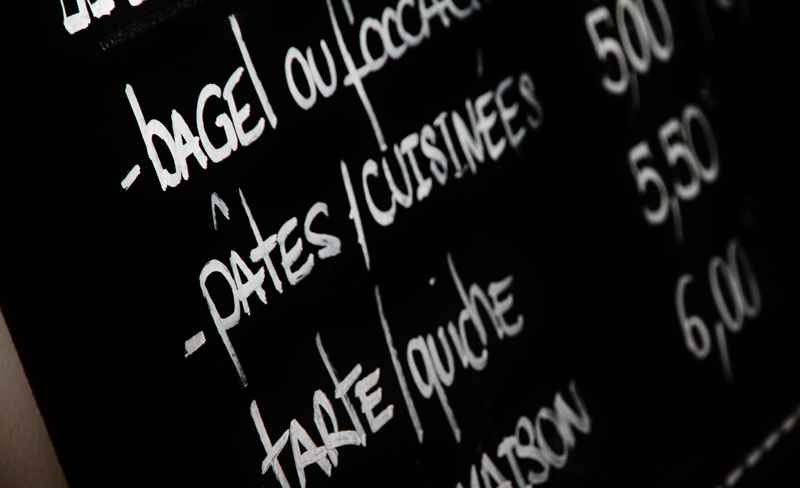 -bAGEl OU 5,00
-PÂTES/CUISINÉES 5,50
tARtE/quiche 6,00
MAISON